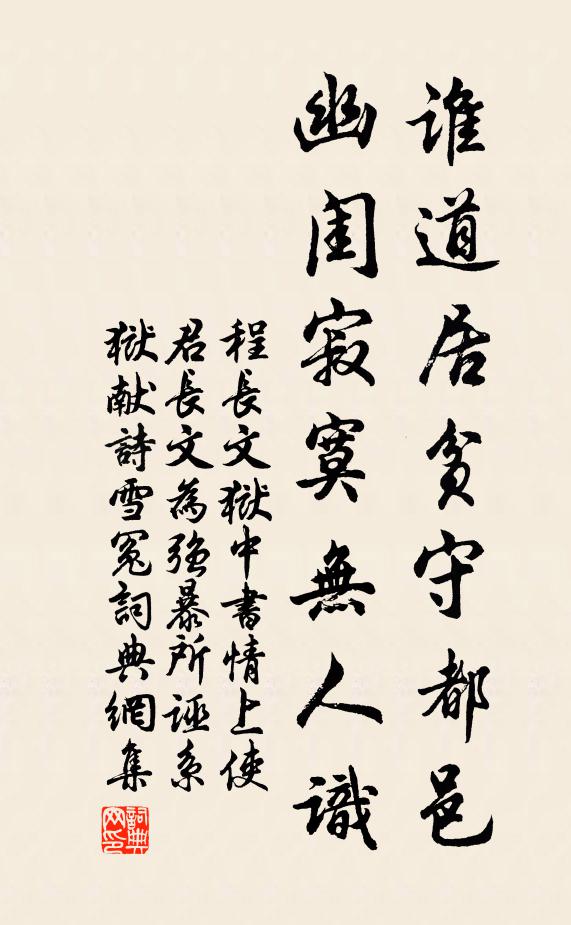 誰道居貧守都邑
幽閨寂寞無人識
程長文獄中書情上使
君長文為強暴所誣系
獄獻詩雪冤詞典網集
詞典網印